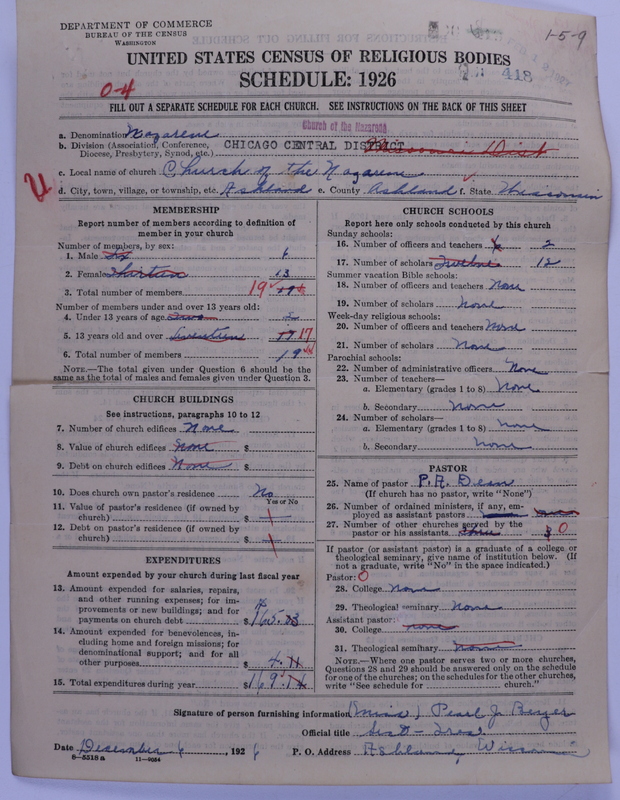 DEPARTMENT OF COMMERCE
BUREAU OF THE CENSUS
WASHINGTON
1-5-9
UNITED STATES CENSUS OF RELIGIOUS BODIES
SCHEDULE: 1926
418
0-4
FILL OUT A SEPARATE SCHEDULE FOR EACH CHURCH. SEE INSTRUCTIONS ON THE BACK OF THIS SHEET
Church of the Nazarene
a. Denomination Nazarene
b. Division (Association, Conference, Diocese, Presbytery, Synod, etc.) CHICAGO CENTRAL DISTRICT
c. Local name of church Church of the Nazarene
d. City, town, village, or township, etc. Ashland e. County Ashland f. State Wisconsin
MEMBERSHIP
Report number of members according to definition of
member in your church
Number of members, by sex:
1. Male Six 6
2. Female Thirteen 13
3. Total number of members 19
Number of members under and over 13 years old:
4. Under 13 years of age Two 2
5. 13 years old and over Seventeen 17 17
6. Total number of members 19
NOTE.—The total given under Question 6 should be
same as the total of males and females given under Question 3.
CHURCH BUILDINGS
See instructions, paragraphs 10 to 12
7. Number of church edifices None
8. Value of church edifices None $
9. Debt on church edifices None $
10. Does church own pastor's residence No
Yes or No
11. Value of pastor's residence (if owned by
church) $
12. Debt on pastor's residence (if owned by
church) $
EXPENDITURES
Amount expended by your church during last fiscal year
13. Amount expended for salaries, repairs,
and other running expenses; for im-
provements or new buildings; and for
payments on church debt $ 165.
14. Amount expended for benevolences, in-
cluding home and foreign missions; for
denominational support; and for all
other purposes $ 4.
15. Total expenditures during year $ 169.
CHURCH SCHOOLS
Report here only schools conducted by this church
Sunday schools:
16. Number of officers and teachers 2
17. Number of scholars Twelve 12
Summer vacation Bible schools:
18. Number of officers and teachers None
19. Number of scholars None
Week-day religious schools:
20. Number of officers and teachers None
21. Number of scholars None
Parochial schools:
22. Number of administrative officers None
23. Number of teachers—
a. Elementary (grades 1 to 8) None
b. Secondary None
24. Number of scholars—
a. Elementary (grades 1 to 8) None
b. Secondary None
PASTOR
25. Name of pastor P. A. Dean
(If church has no pastor, write "None")
26. Number of ordained ministers, if any, em-
ployed as assistant pastors
27. Number of other churches served by the
pastor or his assistants three 3 0
If pastor (or assistant pastor) is a graduate of a college or
theological seminary, give name of institution below. (If
not a graduate, write "No" in the space indicated.)
Pastor: 0
28. College None
29. Theological seminary None
Assistant pastor:
30. College none
31. Theological seminary none
NOTE.—Where one pastor serves two or more churches,
Questions 28 and 29 should be answered only on the schedule
for one of the churches; on the schedules for the other churches,
write "See schedule for church."
Signature of person furnishing information (Miss) Pearl J.
Official title
Date December 6, 1926 P. O. Address Ashland, Wisconsin
8—5518 a 11—9064